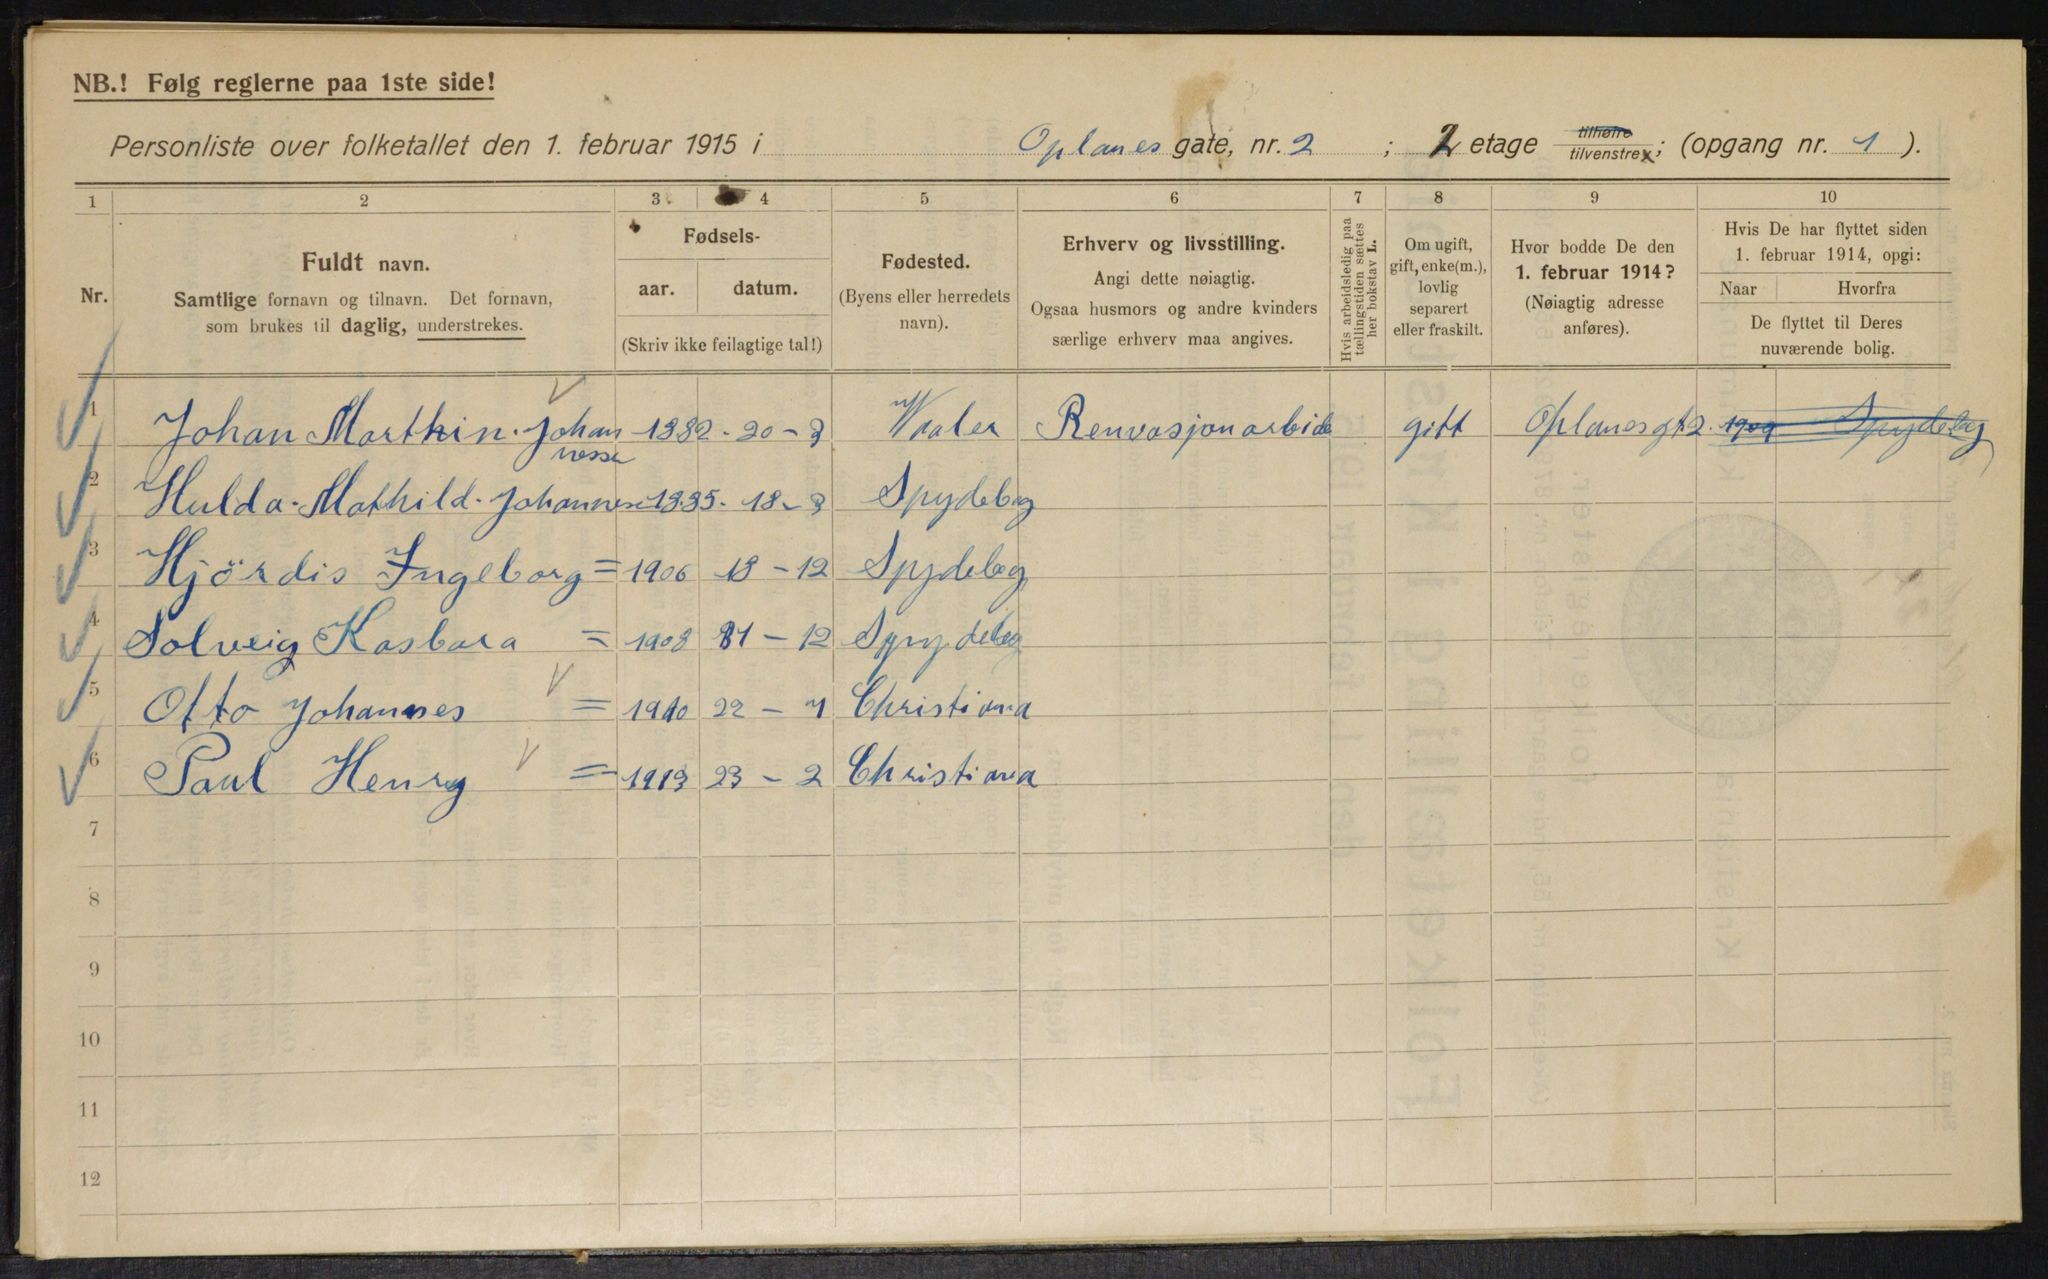 NB.! Følg reglerne paa 1ste side!
Personliste over folketallet den 1. februar 1915 i Oplanes gate, nr. 2 ; 2 etage tilhøire tilvenstre x; (opgang nr. 1).
1 2 3 4 5 6 7 8 9 10
Nr.
Fuldt navn.
Samtlige fornavn og tilnavn. Det fornavn,
som brukes til daglig, understrekes.
Fødsels-
aar. datum.
(Skriv ikke feilagtige tal!)
Fødested.
(Byens eller herredets
navn).
Erhverv og livsstilling.
Angi dette nøiagtig.
Ogsaa husmors og andre kvinders
særlige erhverv maa angives.
Hvis arbeidsledig paa
tællingstiden sættes
her bokstav L.
Om ugift,
gift, enke(m.),
lovlig
separert
eller fraskilt.
Hvor bodde De den
1. februar 1914?
(Nøiagtig adresse
anføres).
Hvis De har flyttet siden
1. februar 1914, opgi:
Naar Hvorfra
De flyttet til Deres
nuværende bolig.
1 Johan Marthin. Johan 1882 - 20 - 3 Vaaler Renvasjonarbide gift Oplanesgt 2. 1909 Spydebeg
nesse
2 Hulda. Mathild. Johannese 1885 - 18 - 3 Spydebeg
3 Hjördis Ingeborg = 1906 18 - 12 Spydebeg
4 Solveig Kasbara = 1908 31 - 12 Spydebeg
5 Otto Johannes = 1910 22 - 7 Christiana
6 Paul Henry = 1913 23 - 2 Christiana
7
8
9
10
11
12